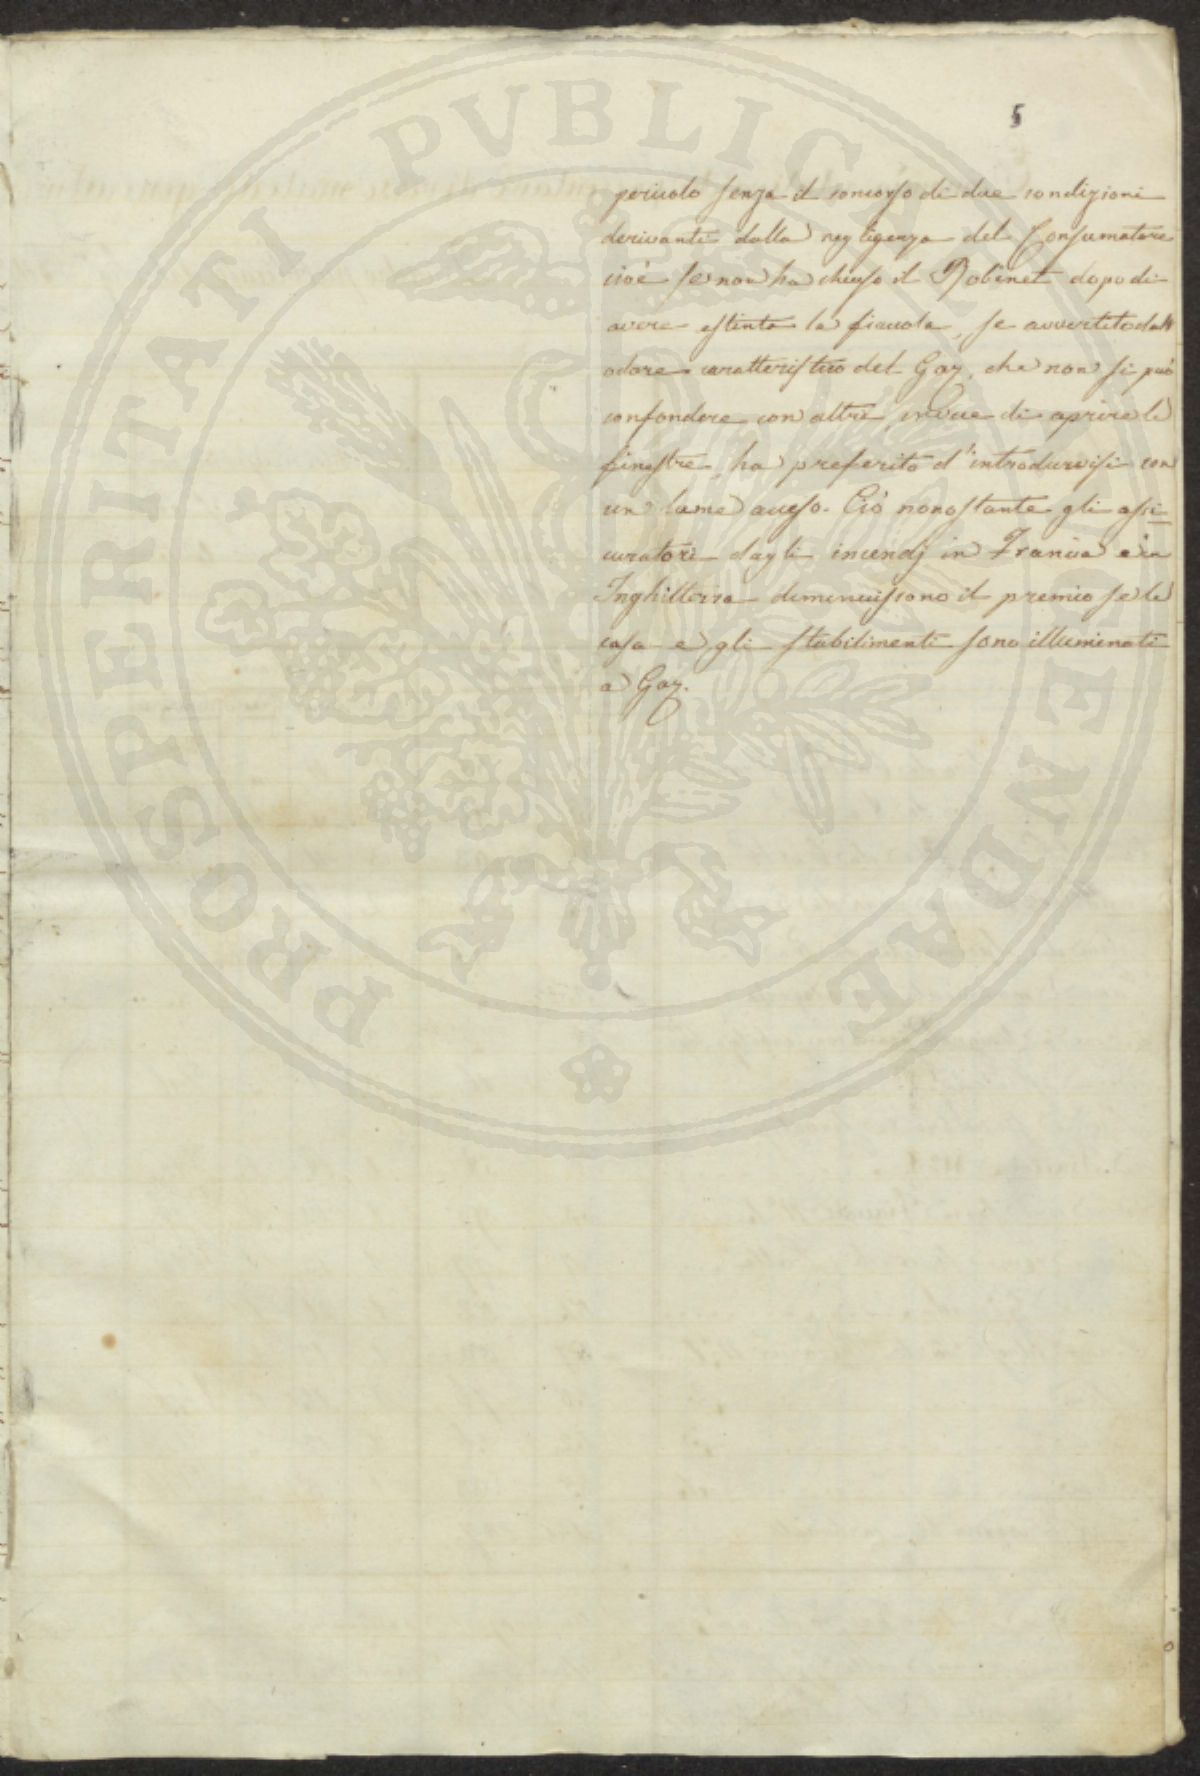 5
PROSPERITATI PVBLICAE AVGENDAE
pericolo senza il concorso di due condizioni
derivanti dalla negligenza del Consumatore
cioè se non ha chiuso il Robinet dopo di
avere estinta la fiaccola, se avvertito dall'
odore caratteristico del Gaz, che non si può
confondere con altri, invece di aprire le
finestre, ha preferito d'introdurvisi con
un lume acceso. Ciò nonostante gli assi=
curatori dagli incendj in Francia e in
Inghilterra diminuiscono il premio se le
case e gli stabilimenti sono illuminati
a Gaz.